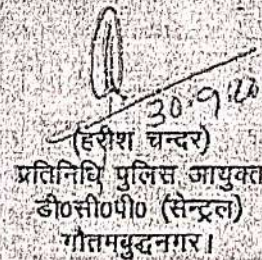 30.9.20
(हरीश चन्दर)
प्रतिनिधि पुलिस आयुक्त
डी०सी०पी० (सेन्ट्रल)
गौतमबुद्धनगर।